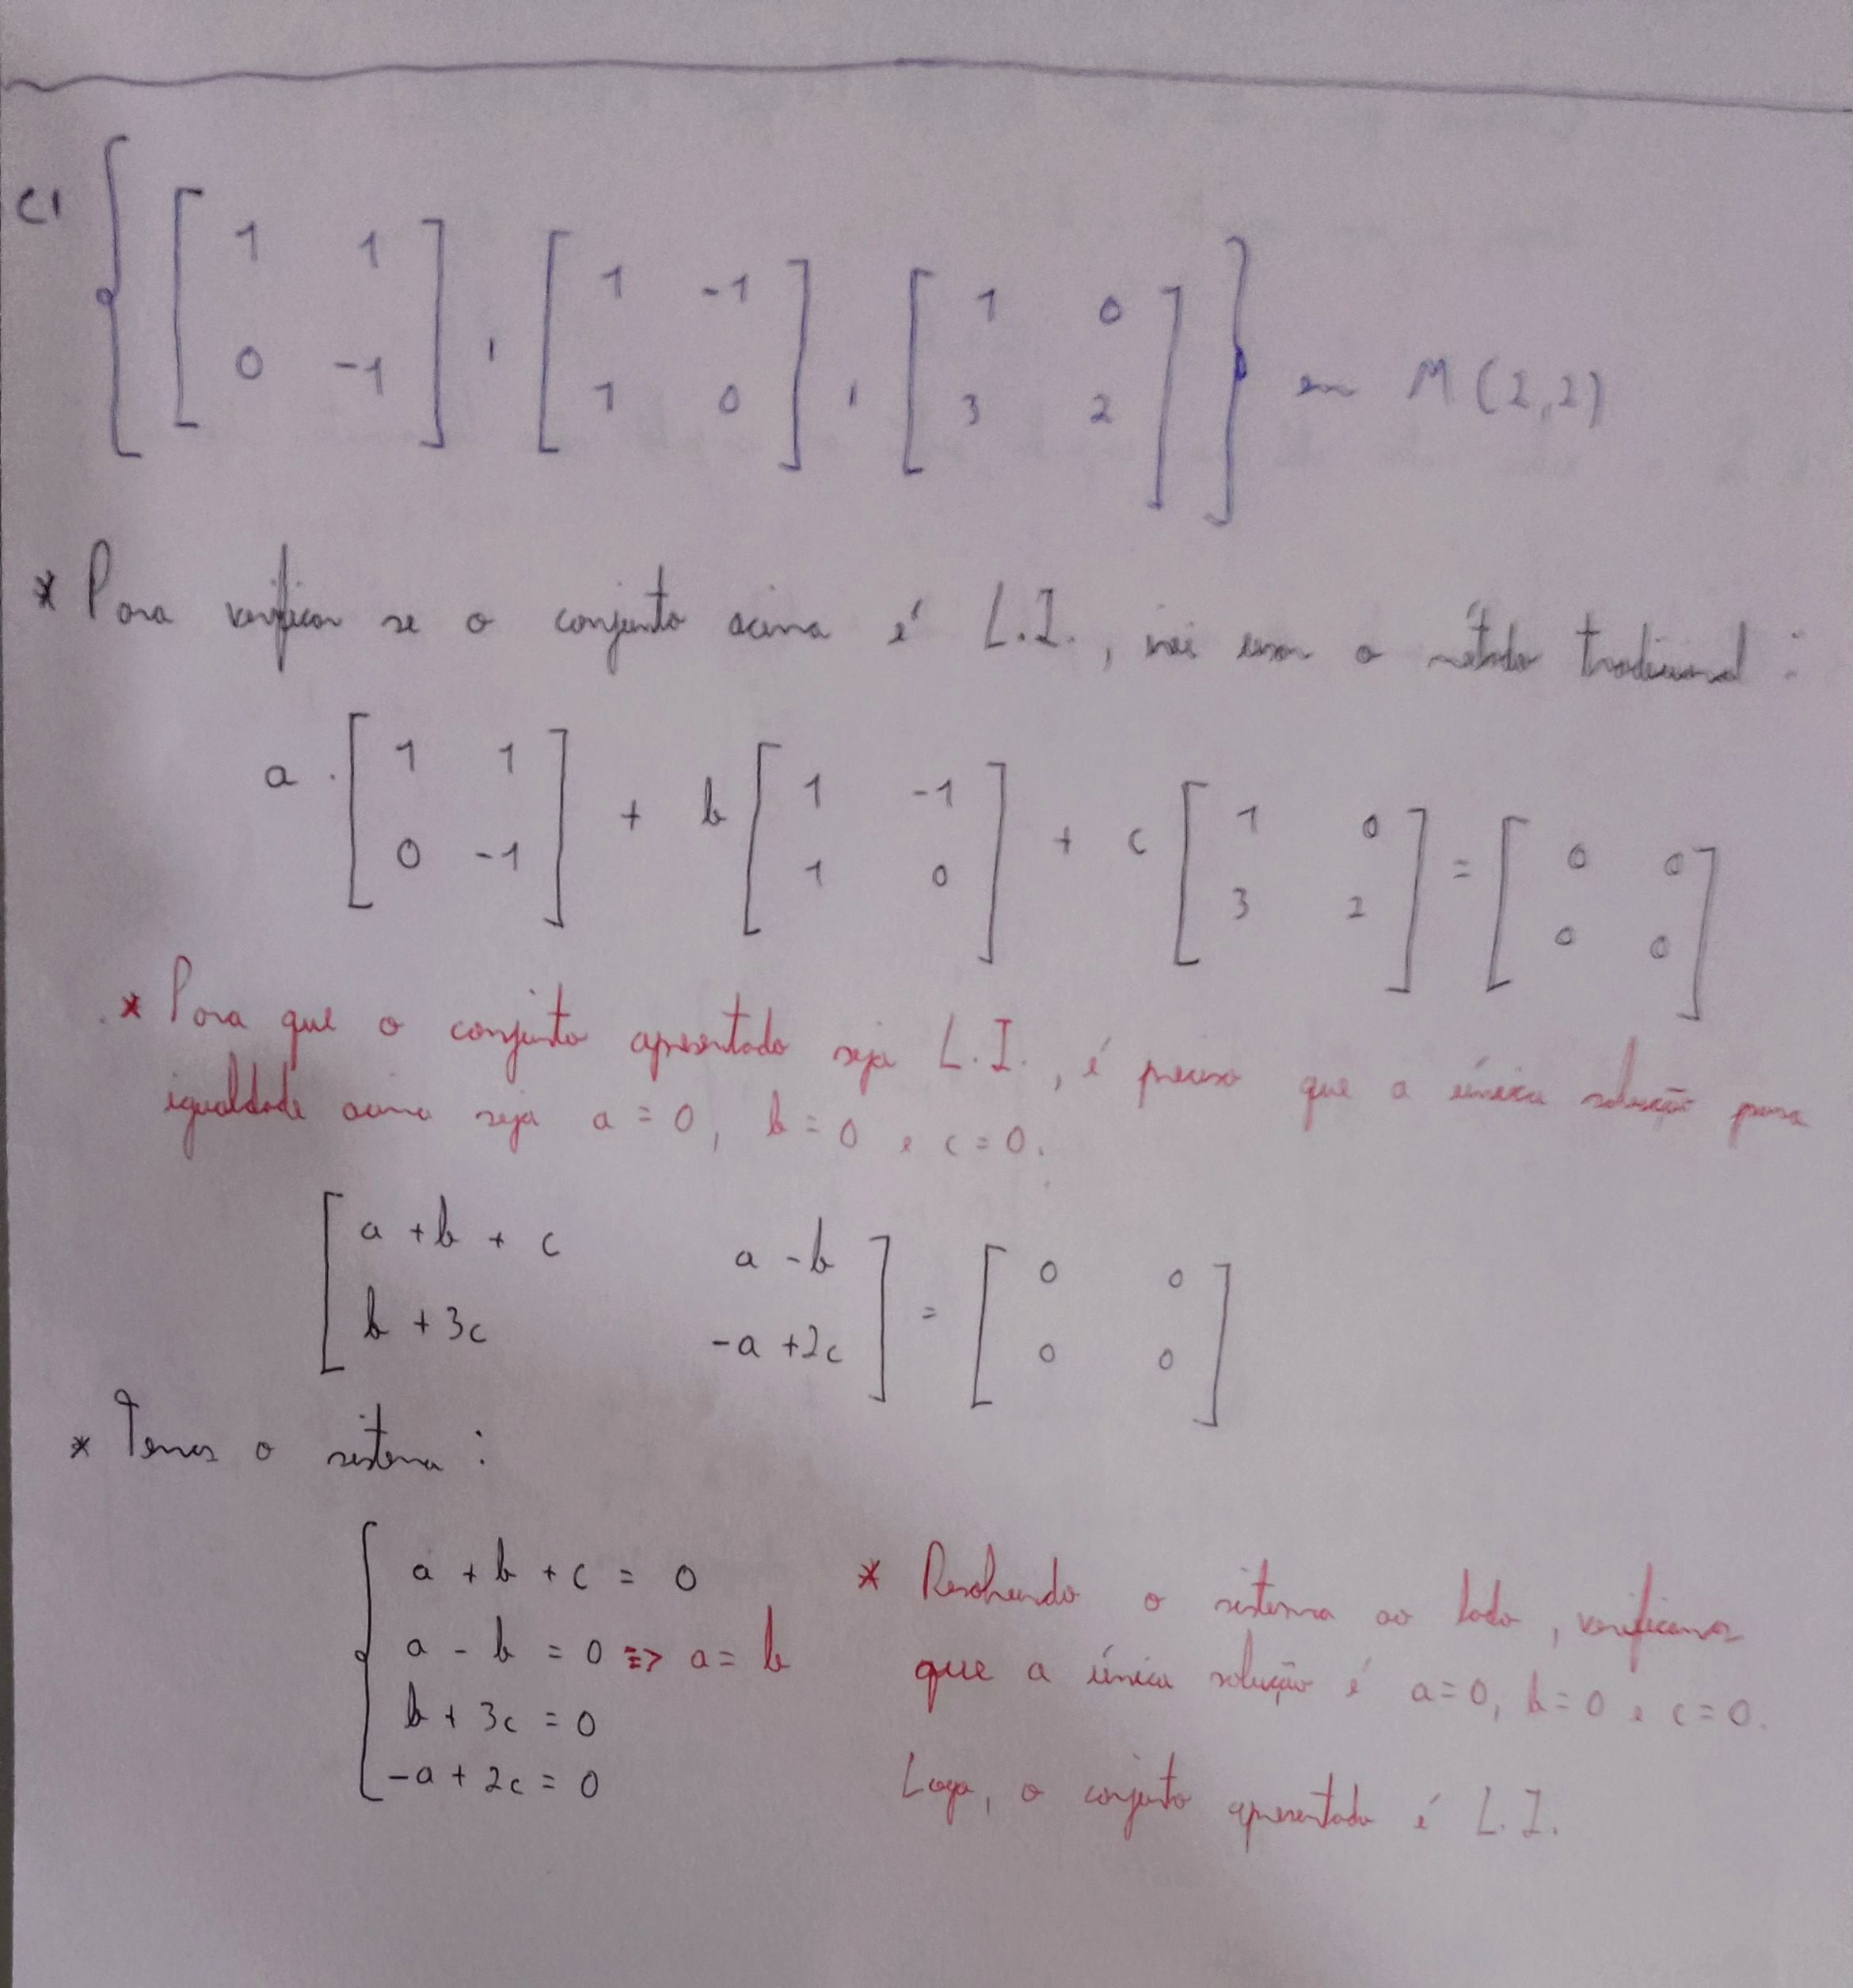 c) { [ 1 1 ] , [ 1 -1 ] , [ 1 0 ] } em M(2,2)
[ 0 -1 ] [ 1 0 ] [ 3 2 ]
* Para verificar se o conjunto acima é L.I., irei usar o método tradicional :
a . [ 1 1 ] + b [ 1 -1 ] + c [ 1 0 ] = [ 0 0 ]
[ 0 -1 ] [ 1 0 ] [ 3 2 ] [ 0 0 ]
* Para que o conjunto apresentado seja L.I., é preciso que a única solução para
igualdade acima seja a = 0, b = 0 e c = 0.
[ a + b + c a - b ] = [ 0 0 ]
[ b + 3c -a + 2c ] [ 0 0 ]
* Temos o sistema :
a + b + c = 0
a - b = 0 => a = b
b + 3c = 0
-a + 2c = 0
* Resolvendo o sistema ao lado, verificamos
que a única solução é a = 0, b = 0 e c = 0.
Logo, o conjunto apresentado é L.I.